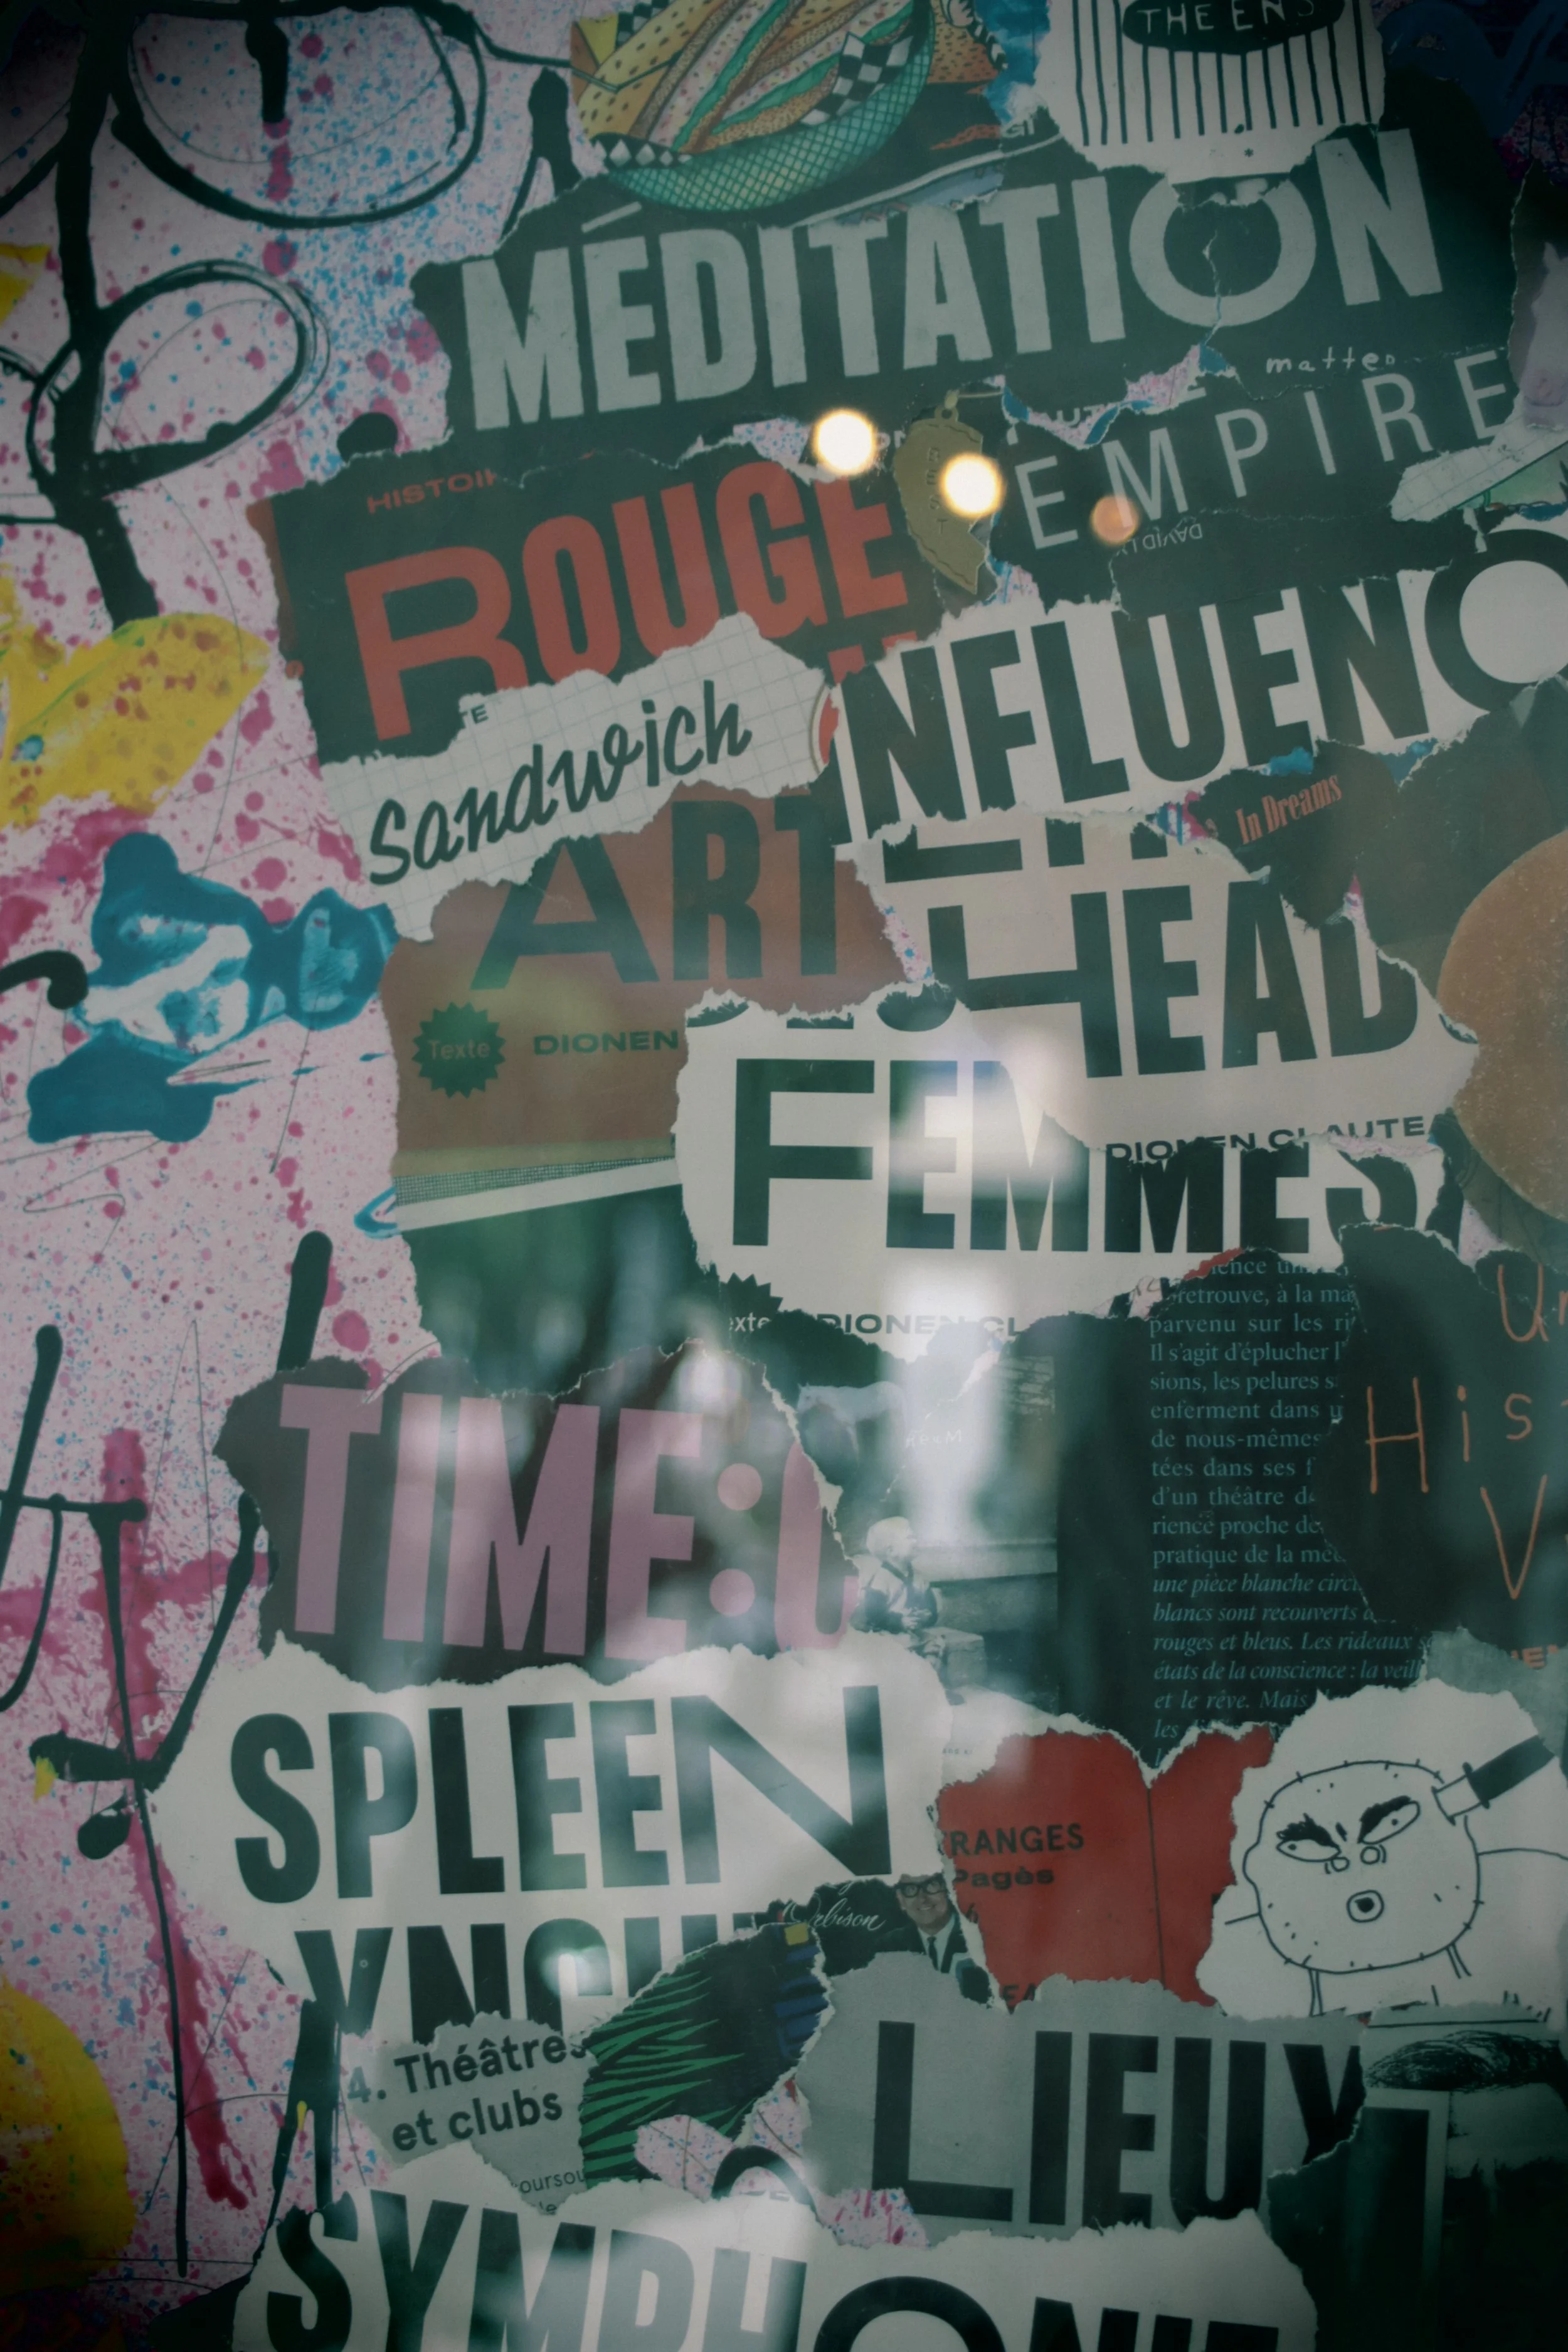 THE END
MÉDITATION
matter
EMPIRE
HISTOI
ROUGE
DAVID LY
INFLUENC
Sandwich
In Dreams
ART
HEAD
Texte DIONEN
DIONEN CLAUTE
FEMMES
exte DIONEN CL
ience un
retrouve, à la ma
parvenu sur les ri
Il s'agit d'éplucher l'
sions, les pelures s
enferment dans u
de nous-mêmes
tées dans ses f
d'un théâtre de
rience proche de
pratique de la méd
une pièce blanche circu
blancs sont recouverts d
rouges et bleus. Les rideaux s
états de la conscience : la veill
et le rêve. Mais
les
Un
His
V
TIME:
SPLEEN
RANGES
Pagès
Orbison
YNCH
4. Théâtres
et clubs
LIEUX
SYMPHONIE